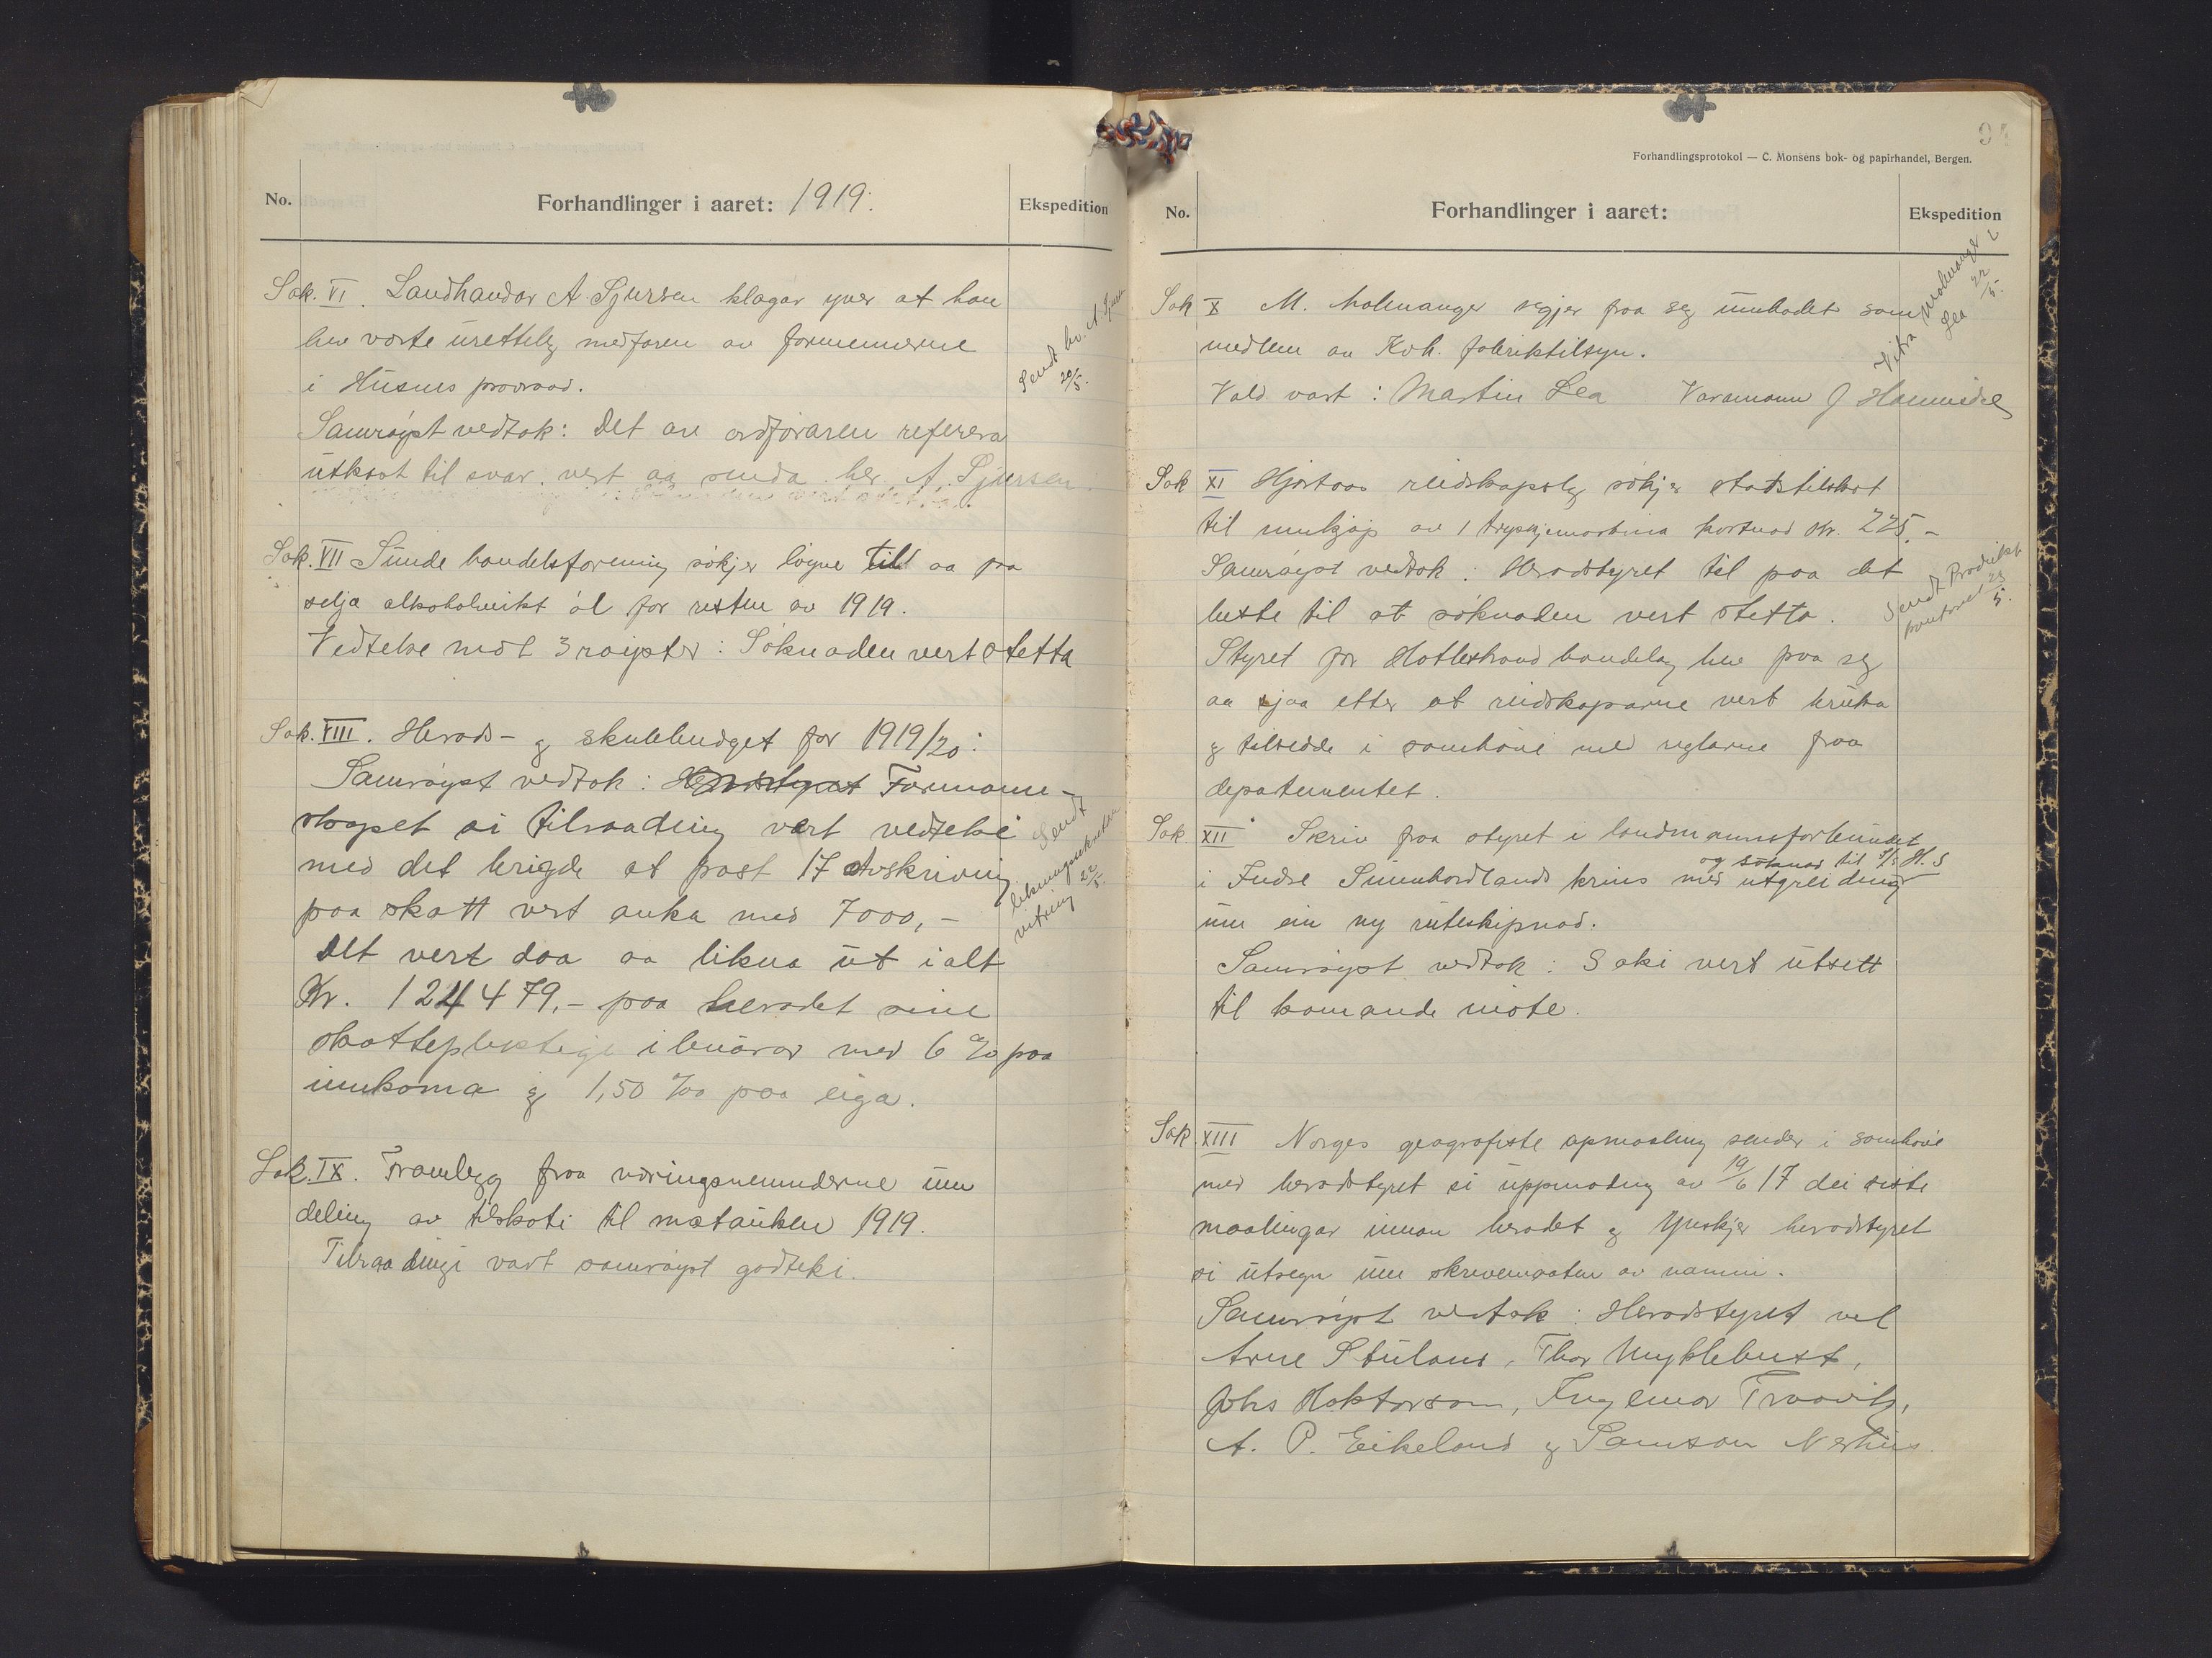 No.
Forhandlinger i aaret: 1919.
Ekspedition
Sak. VI. Landhandar A. Sjursen klagar yver at han
hev vorte uretteleg medfaren av formennerne
i Husnes provraad.
Samrøyst vedtok: Det av ordføraren refererа
utkast til svar, vert aa senda hr. A. Sjursen.
Sendt hr. A. Sjursen
20/5.
Sak. VII Sunde handelsforening søkjer løyve till aa faa
selja alkoholsvikt øl for resten av 1919.
Vedteke mot 3 røyster: Søknaden vert stetta
Sak. VIII. Herads- og skulebudget for 1919/20:
Samrøyst vedtok: Formann-
skapet si tilraading vert vedteke
med det brigde at post 17 Avskriving
paa skatt vert auka med 7000,-
Det vert daa aa likna ut i alt
Kr. 124479,- paa heradet sine
skattepliktige ibuarar med 6 % paa
innkoma og 1,50 ‰ paa eiga.
Sendt
vitring
22/5.
Sak. IX. Framlegg fraa næringsnemnderne um
deling av tilskot til matauken 1919.
Tilraadingi vart samrøyst godteki.
94
Forhandlingsprotokol — C. Monsens bok- og papirhandel, Bergen.
No.
Forhandlinger i aaret:
Ekspedition
Sak X M. Malmanger segjer fraa seg umbodet som
medlem av Kvh. fabriktilsyn.
Vald vart: Martin Lea Varamann J Hammedal
Vitra Malmanger
Lea 22/5.
Sak XI Hjortaas reidskapslag søkjer statstilskot
til innkjøp av 1 kostnad kr. 225.-
Samrøyst vedtok: Heradstyret tel paa det
beste til at søknaden vert stetta.
Styret for Hatlestrand bondelag hev paa seg
aa sjaa etter at reidskaparne vert bruka
og tilsedde i samhøve med reglarne fraa
departementet.
Sendt Provikt
kontoret 23/5.
Sak XII Skriv fraa styret i landmannsforbundet
i Indre Sunnhordlands krins med utgreiding
og søknad til H. S
um ein ny ruteskipnad.
Samrøyst vedtok: Saki vert utsett
til komande møte.
Sak XIII Norges geografiske opmaaling sender i samhøve
med heradstyret si uppmoding av 19/6 17 dei siste
maalingar innan heradet og ynskjer heradstyret
si utsegn um skrivemaaten av namni.
Samrøyst vedtok: Heradstyret vel
Arne Stuland, Thor Myklebust,
Johs Haktorson, Ingemar Traavik,
A. P. Eikeland og Samson Neshus.